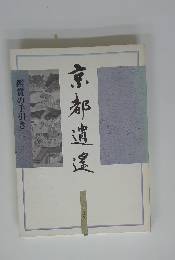 京都逍遥
鑑賞の手引き